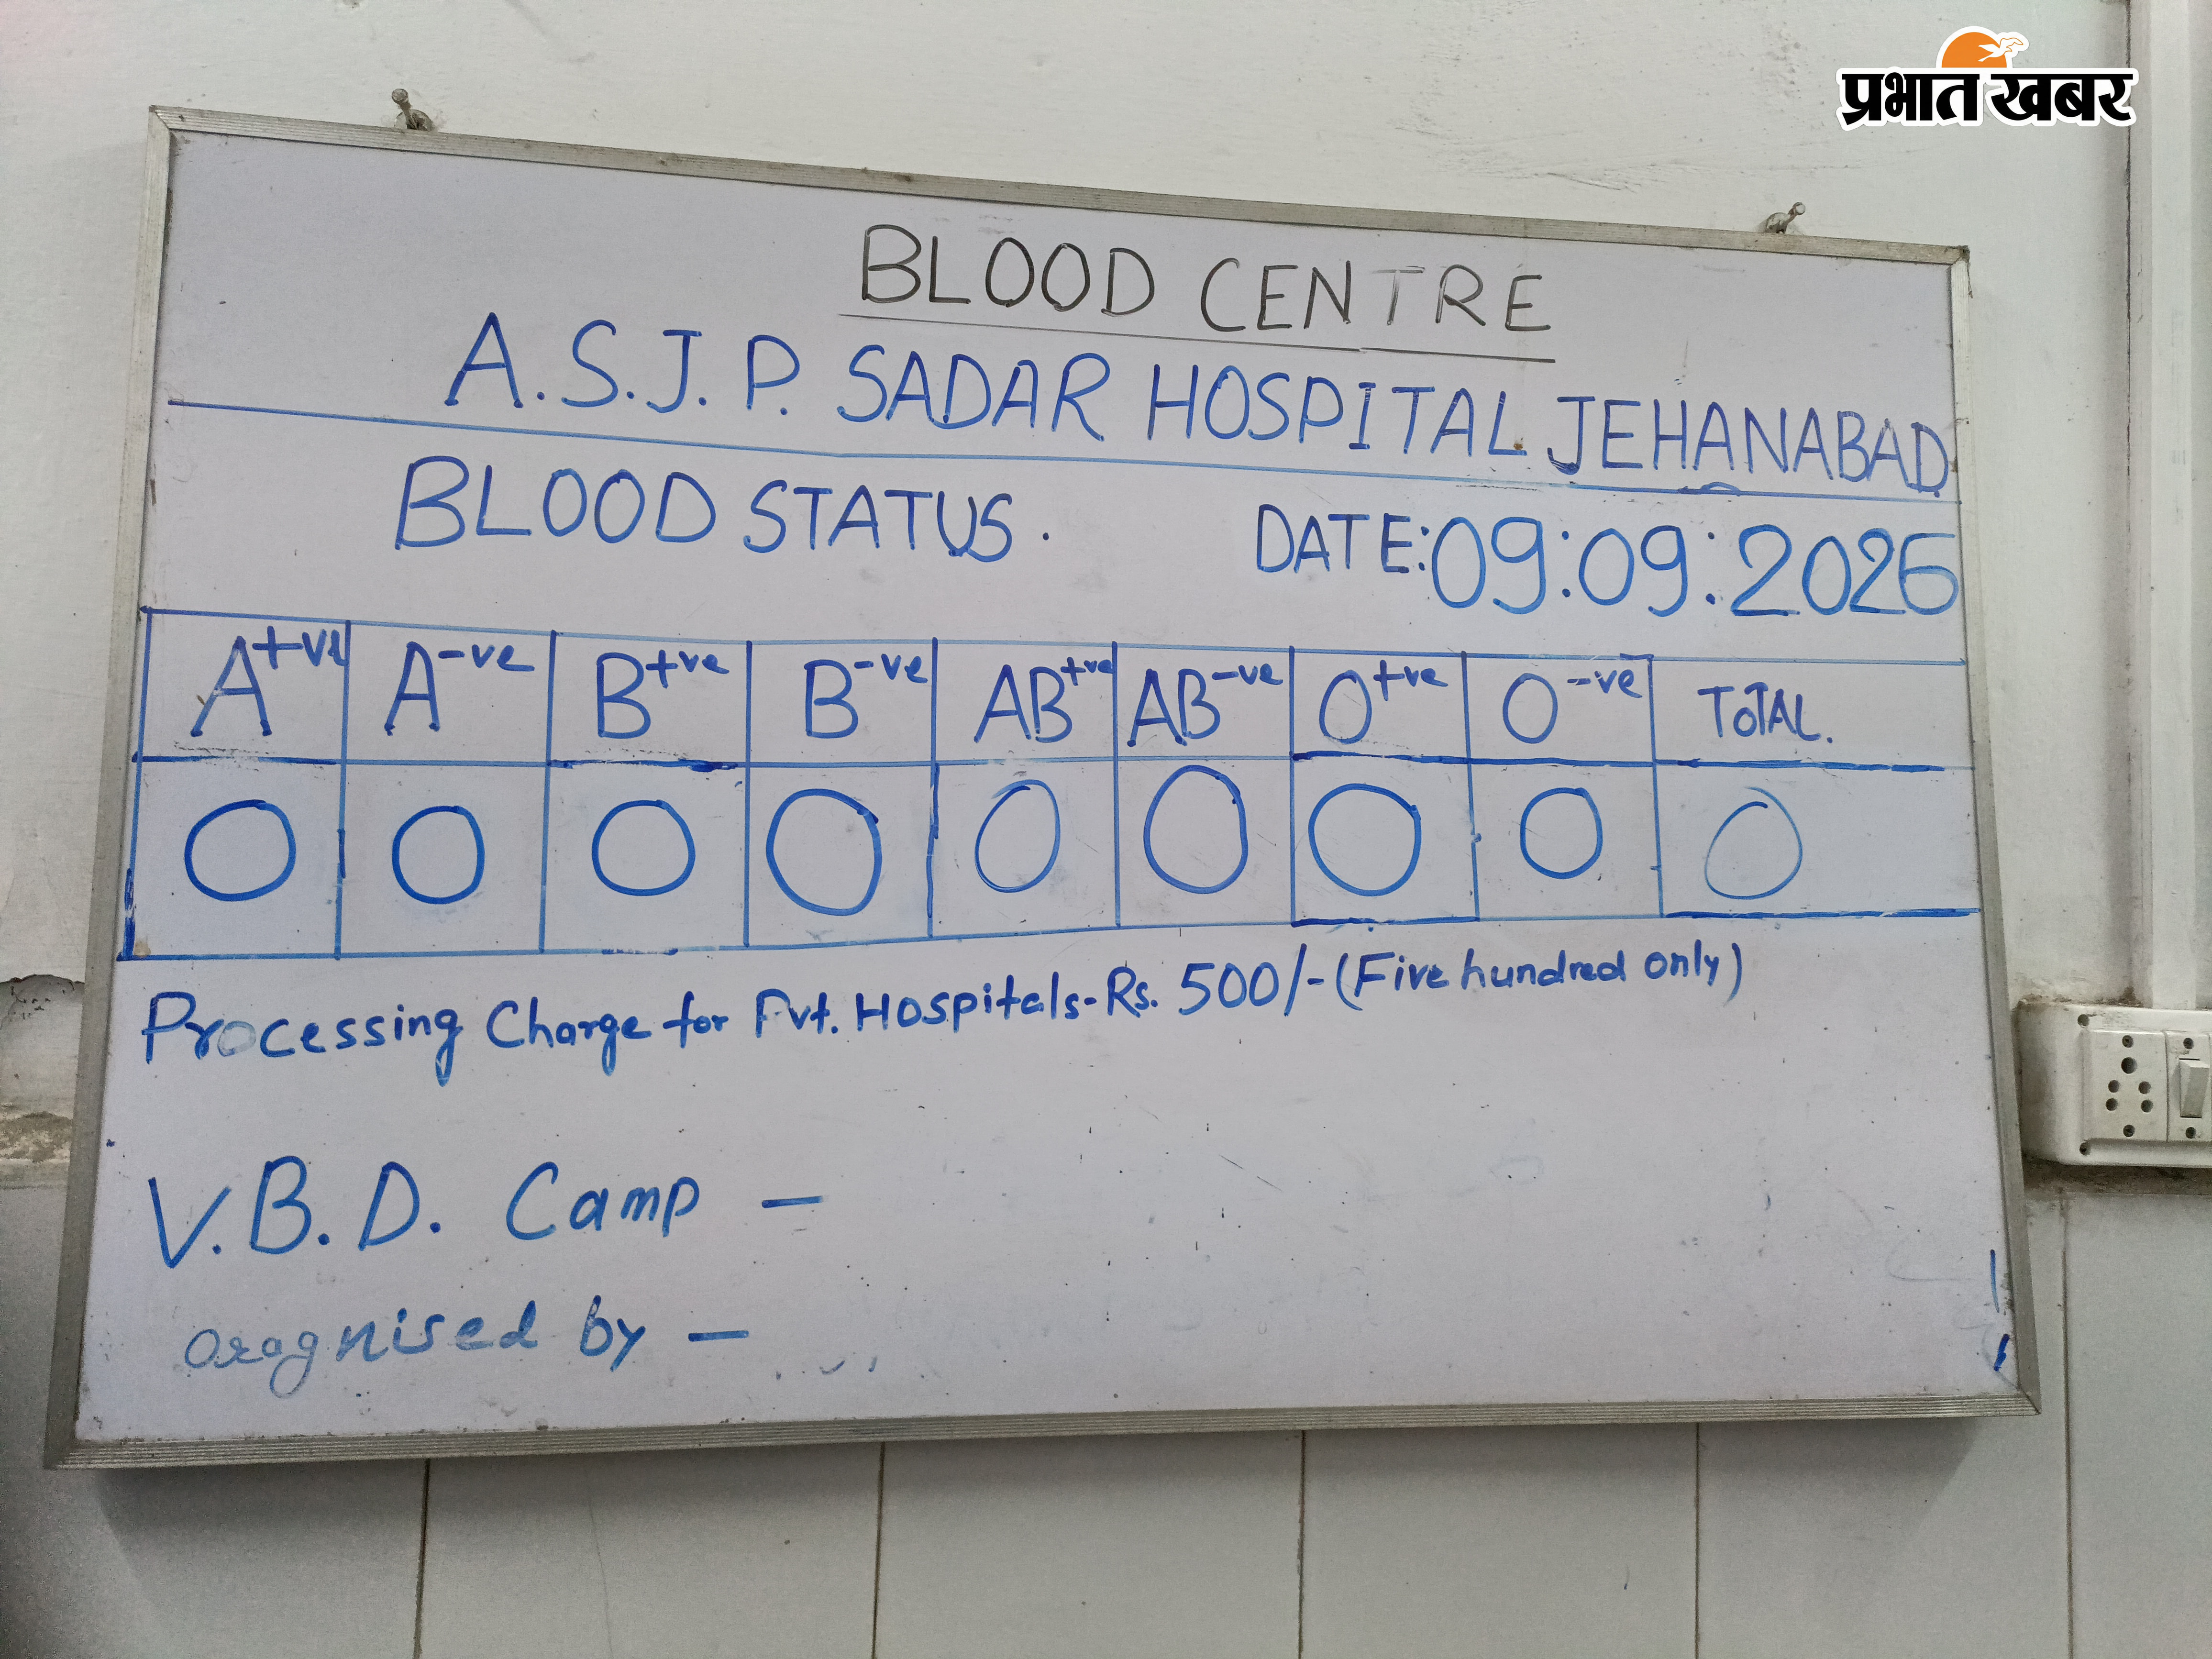 प्रभात खबर
BLOOD CENTRE
A.S.J.P. SADAR HOSPITAL JEHANABAD
BLOOD STATUS. DATE:09:09:2026
A+ve A-ve B+ve B-ve AB+ve AB-ve O+ve O-ve TOTAL.
0 0 0 0 0 0 0 0 0
Processing Charge for Pvt. Hospitals-Rs. 500/-(Five hundred only)
V.B.D. Camp –
oragnised by –